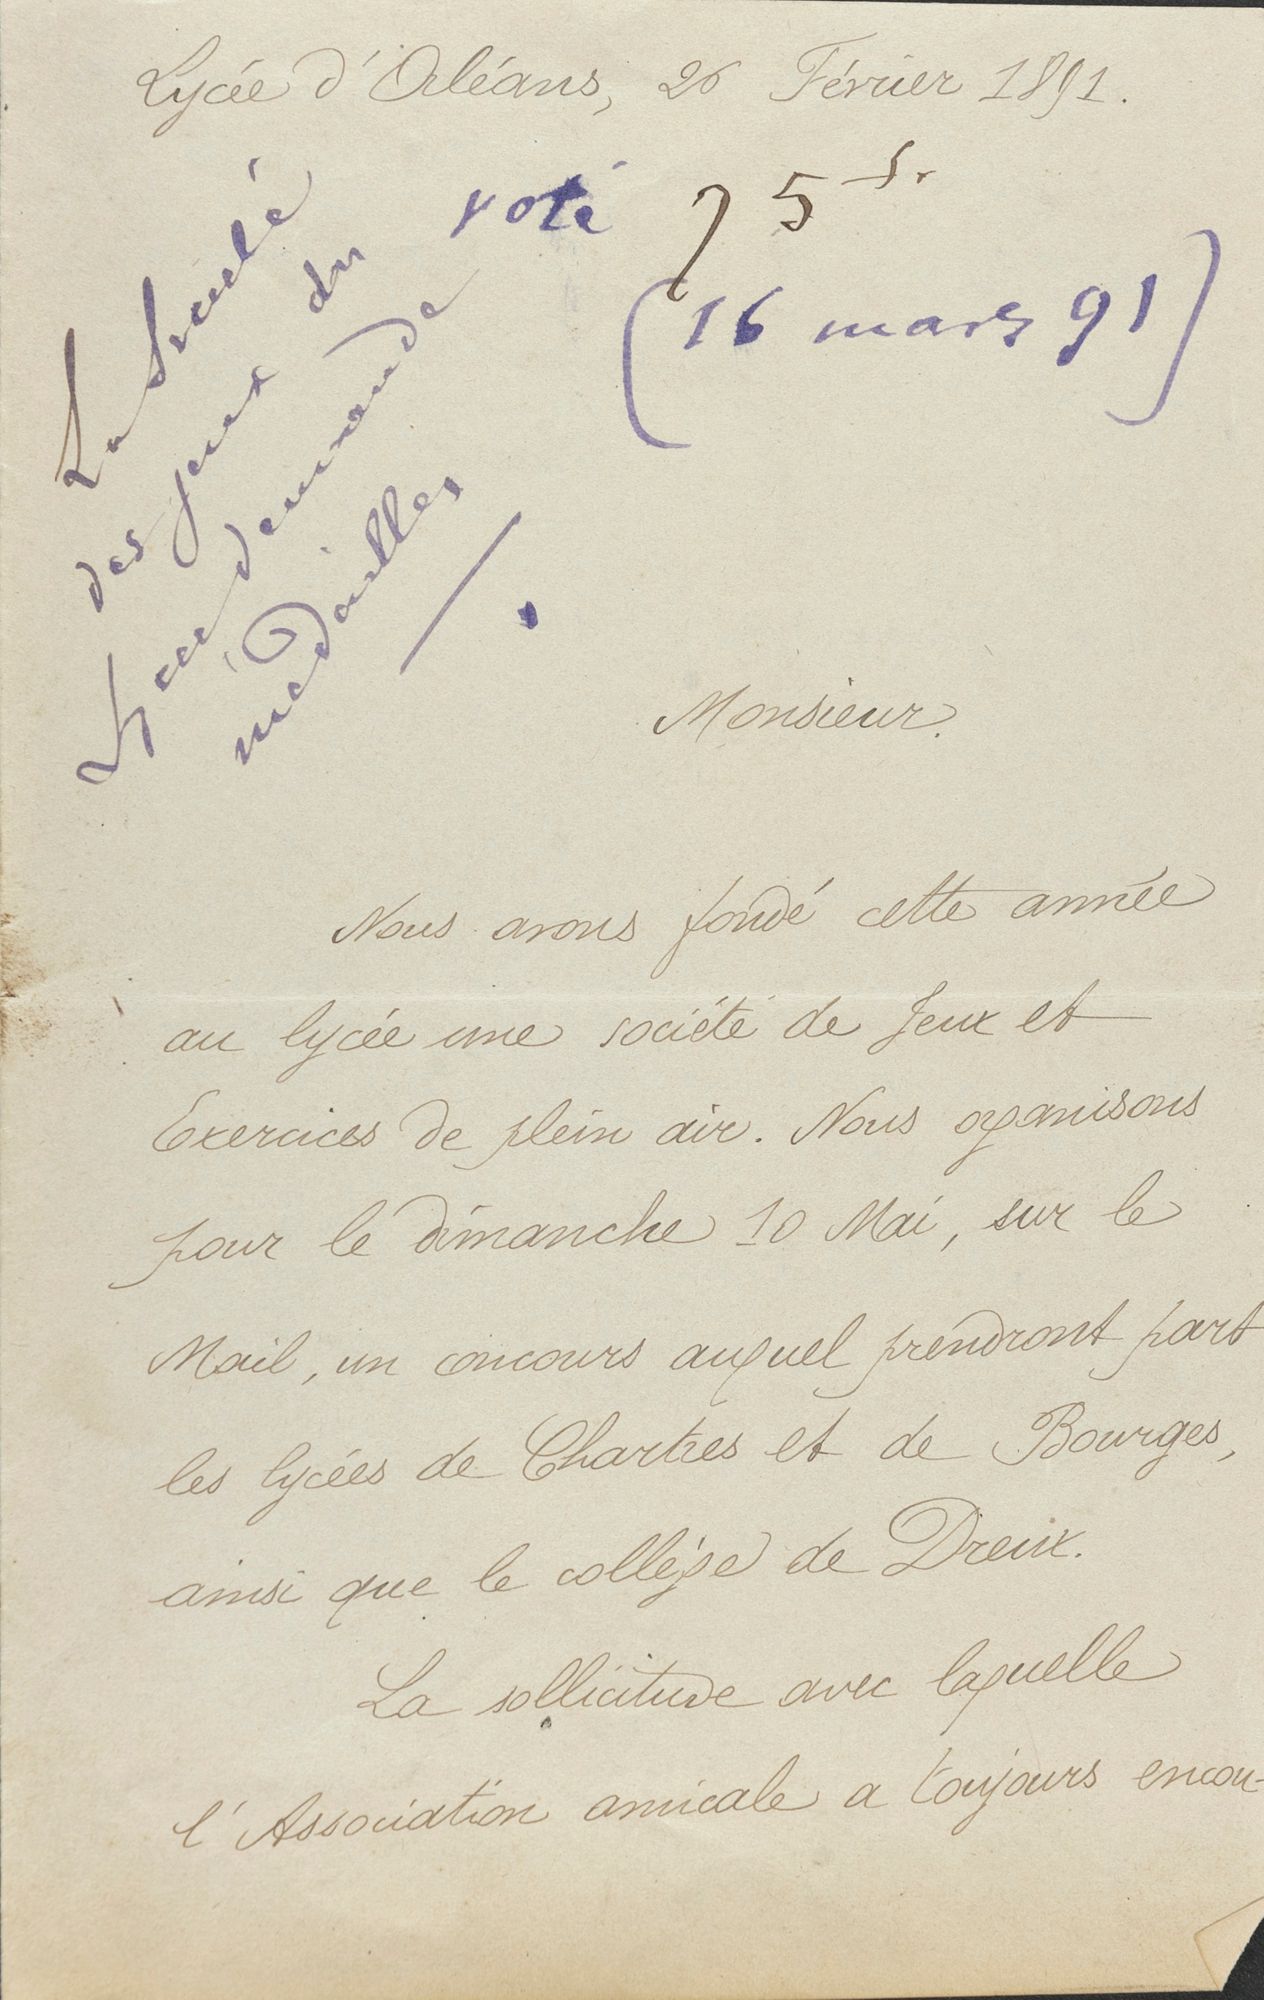 Lycée d'Orléans, 26 Février 1891.
voté 75 fr
(16 mars 91)
La Société
des jeux du
Lycée demande
médailles
Monsieur.
Nous avons fondé cette année
au lycée une société de Jeux et
Exercices de plein air. Nous organisons
pour le dimanche 10 Mai, sur le
Mail, un concours auquel prendront part
les lycées de Chartres et de Bourges,
ainsi que le collège de Dreux.
La sollicitude avec laquelle
l'Association amicale a toujours encou-